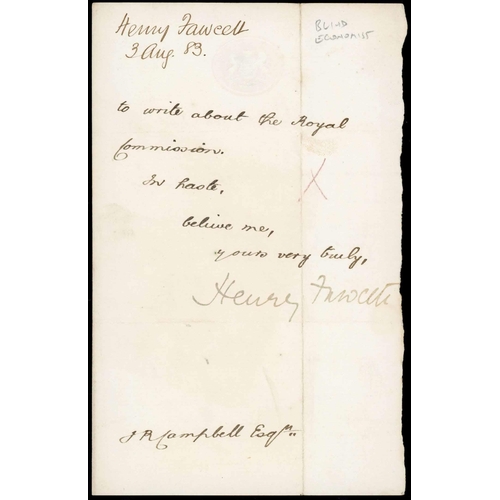 Henry Fawcett
3 Aug. 83.
BLIND
ECONOMIST
to write about the Royal
Commission.
In haste,
believe me,
yours very truly,
Henry Fawcett
J R Campbell Esqre.